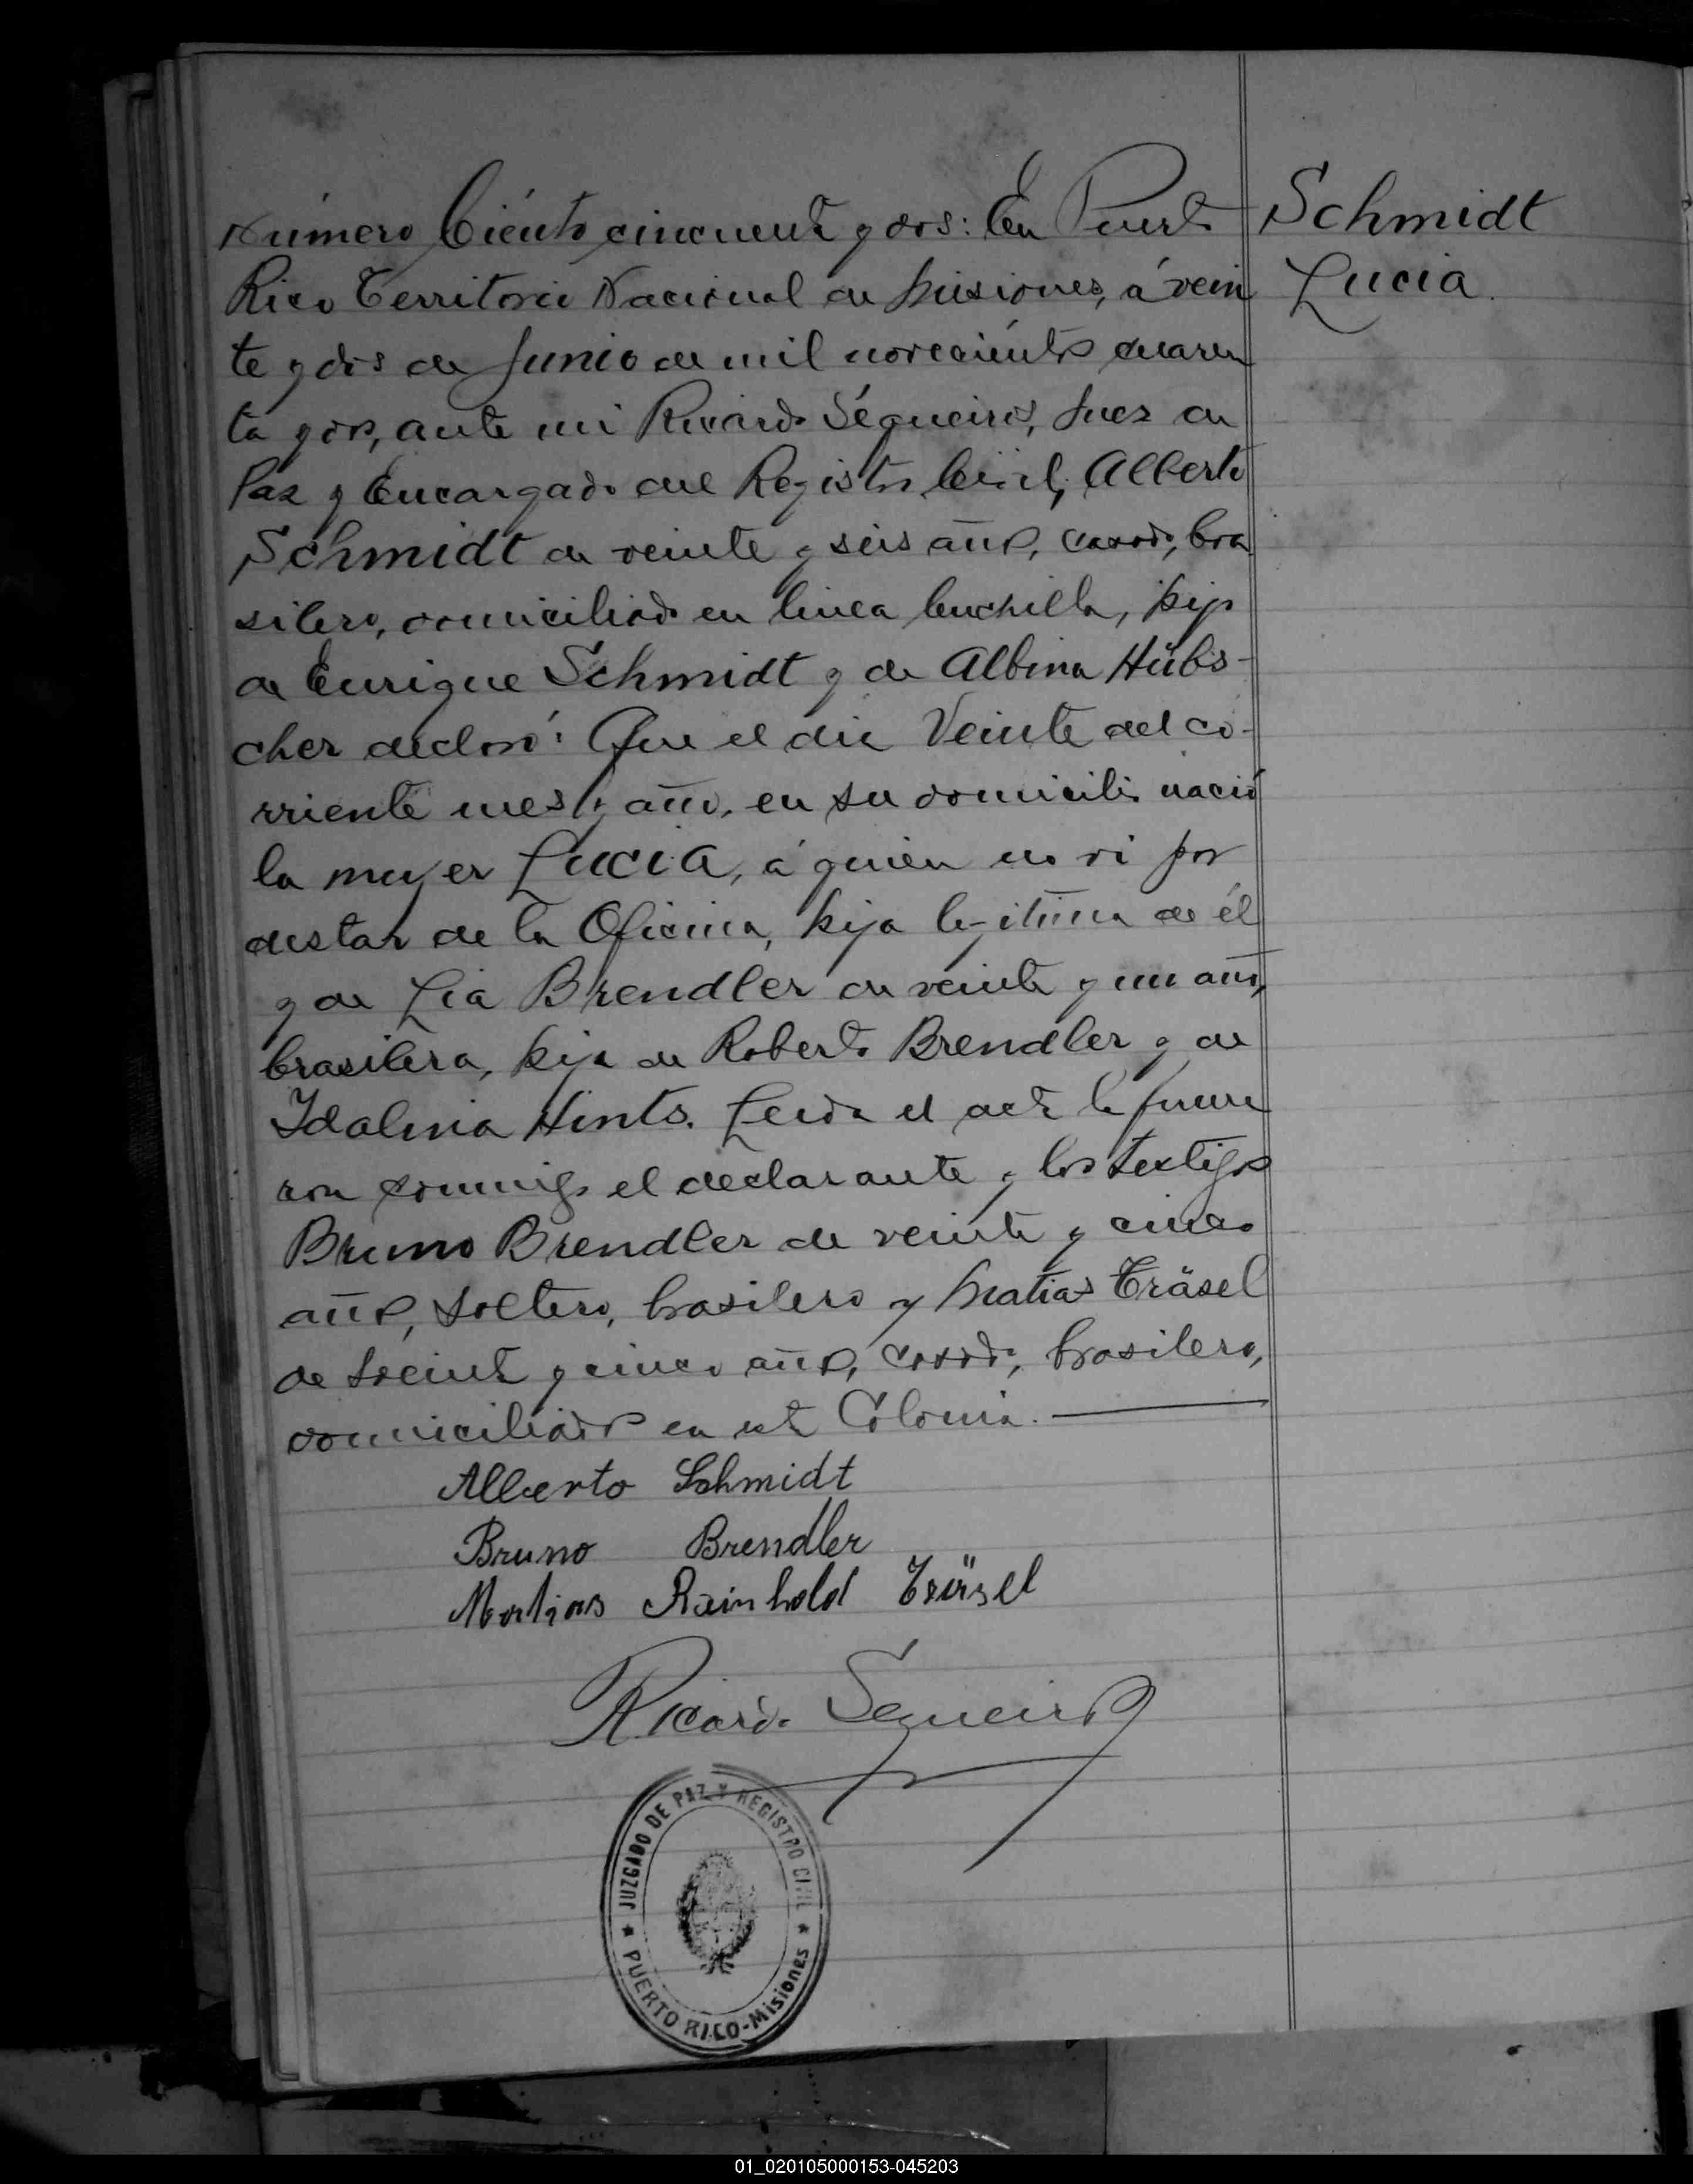 Número Ciénto cincuenta y dos: En Puerto
Schmidt
Rico Territorio Nacional de Misiones, á vein
Lucia.
te y dos de Junio de mil novecientos cuaren
ta y dos, ante mi Ricardo Séqueiros, Juez de
Paz y Encargado del Registro Civil, Alberto
Schmidt de veinte y seis años, casado, bra
silero, domiciliado en linea Cuchilla, hijo
de Enrique Schmidt y de Albina Hübs-
cher declaró: Que el dia Veinte del co-
rriente mes y año, en su domicilio nació
la mujer Lucia, á quien no vi por
distar de la Oficina, hija legitima de él
y de Lia Brendler de veinte y un años,
brasilera, hija de Roberto Brendler y de
Idalina Hints. Leida el acta la firma
ron conmigo el declarante y los testigos
Bruno Brendler de veinte y cinco
años, soltero, brasilero y Matias Träsel
de treinta y cinco años, casado, brasilero,
domiciliados en esta Colonia.
Alberto Schmidt
Bruno Brendler
Matias Reinhold Träsel
Ricardo Sequeiros
JUZGADO DE PAZ Y REGISTRO CIVIL
PUERTO RICO-Misiones
01_020105000153-045203